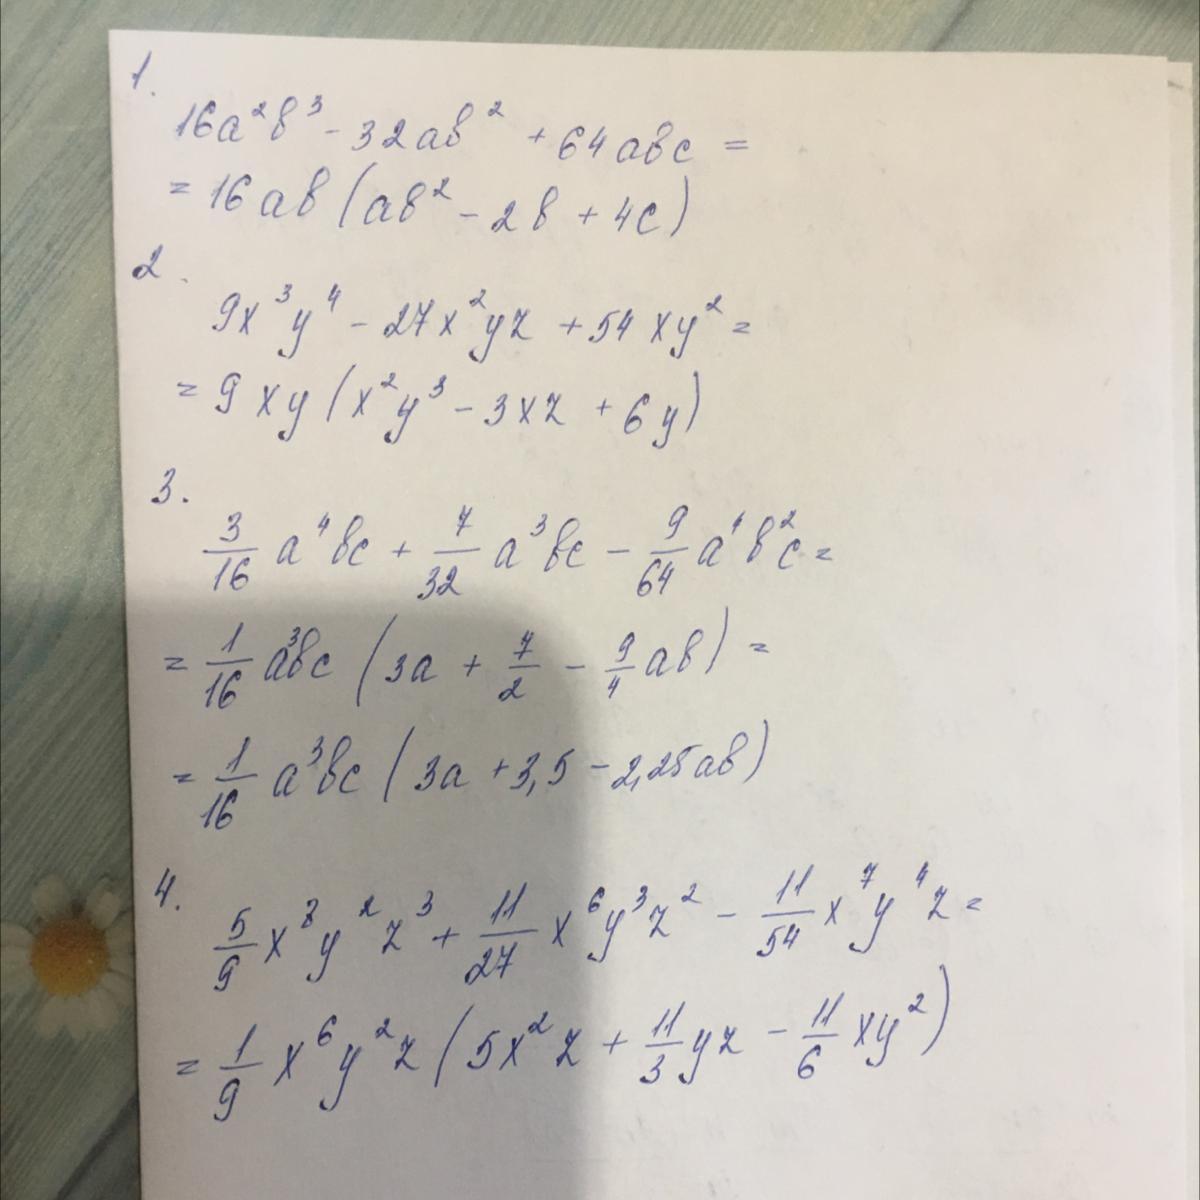 1.
16a²b³ - 32ab² + 64abc =
= 16ab (ab² - 2b + 4c)
2.
9x³y⁴ - 27x²yz + 54xy² =
= 9xy (x²y³ - 3xz + 6y)
3.
3/16 a⁴bc + 7/32 a³bc - 9/64 a⁴b²c =
= 1/16 a³bc (3a + 7/2 - 9/4 ab) =
= 1/16 a³bc (3a + 3,5 - 2,25ab)
4.
5/9 x⁸y²z³ + 11/27 x⁶y³z² - 11/54 x⁷y⁴z =
= 1/9 x⁶y²z (5x²z + 11/3 yz - 11/6 xy²)